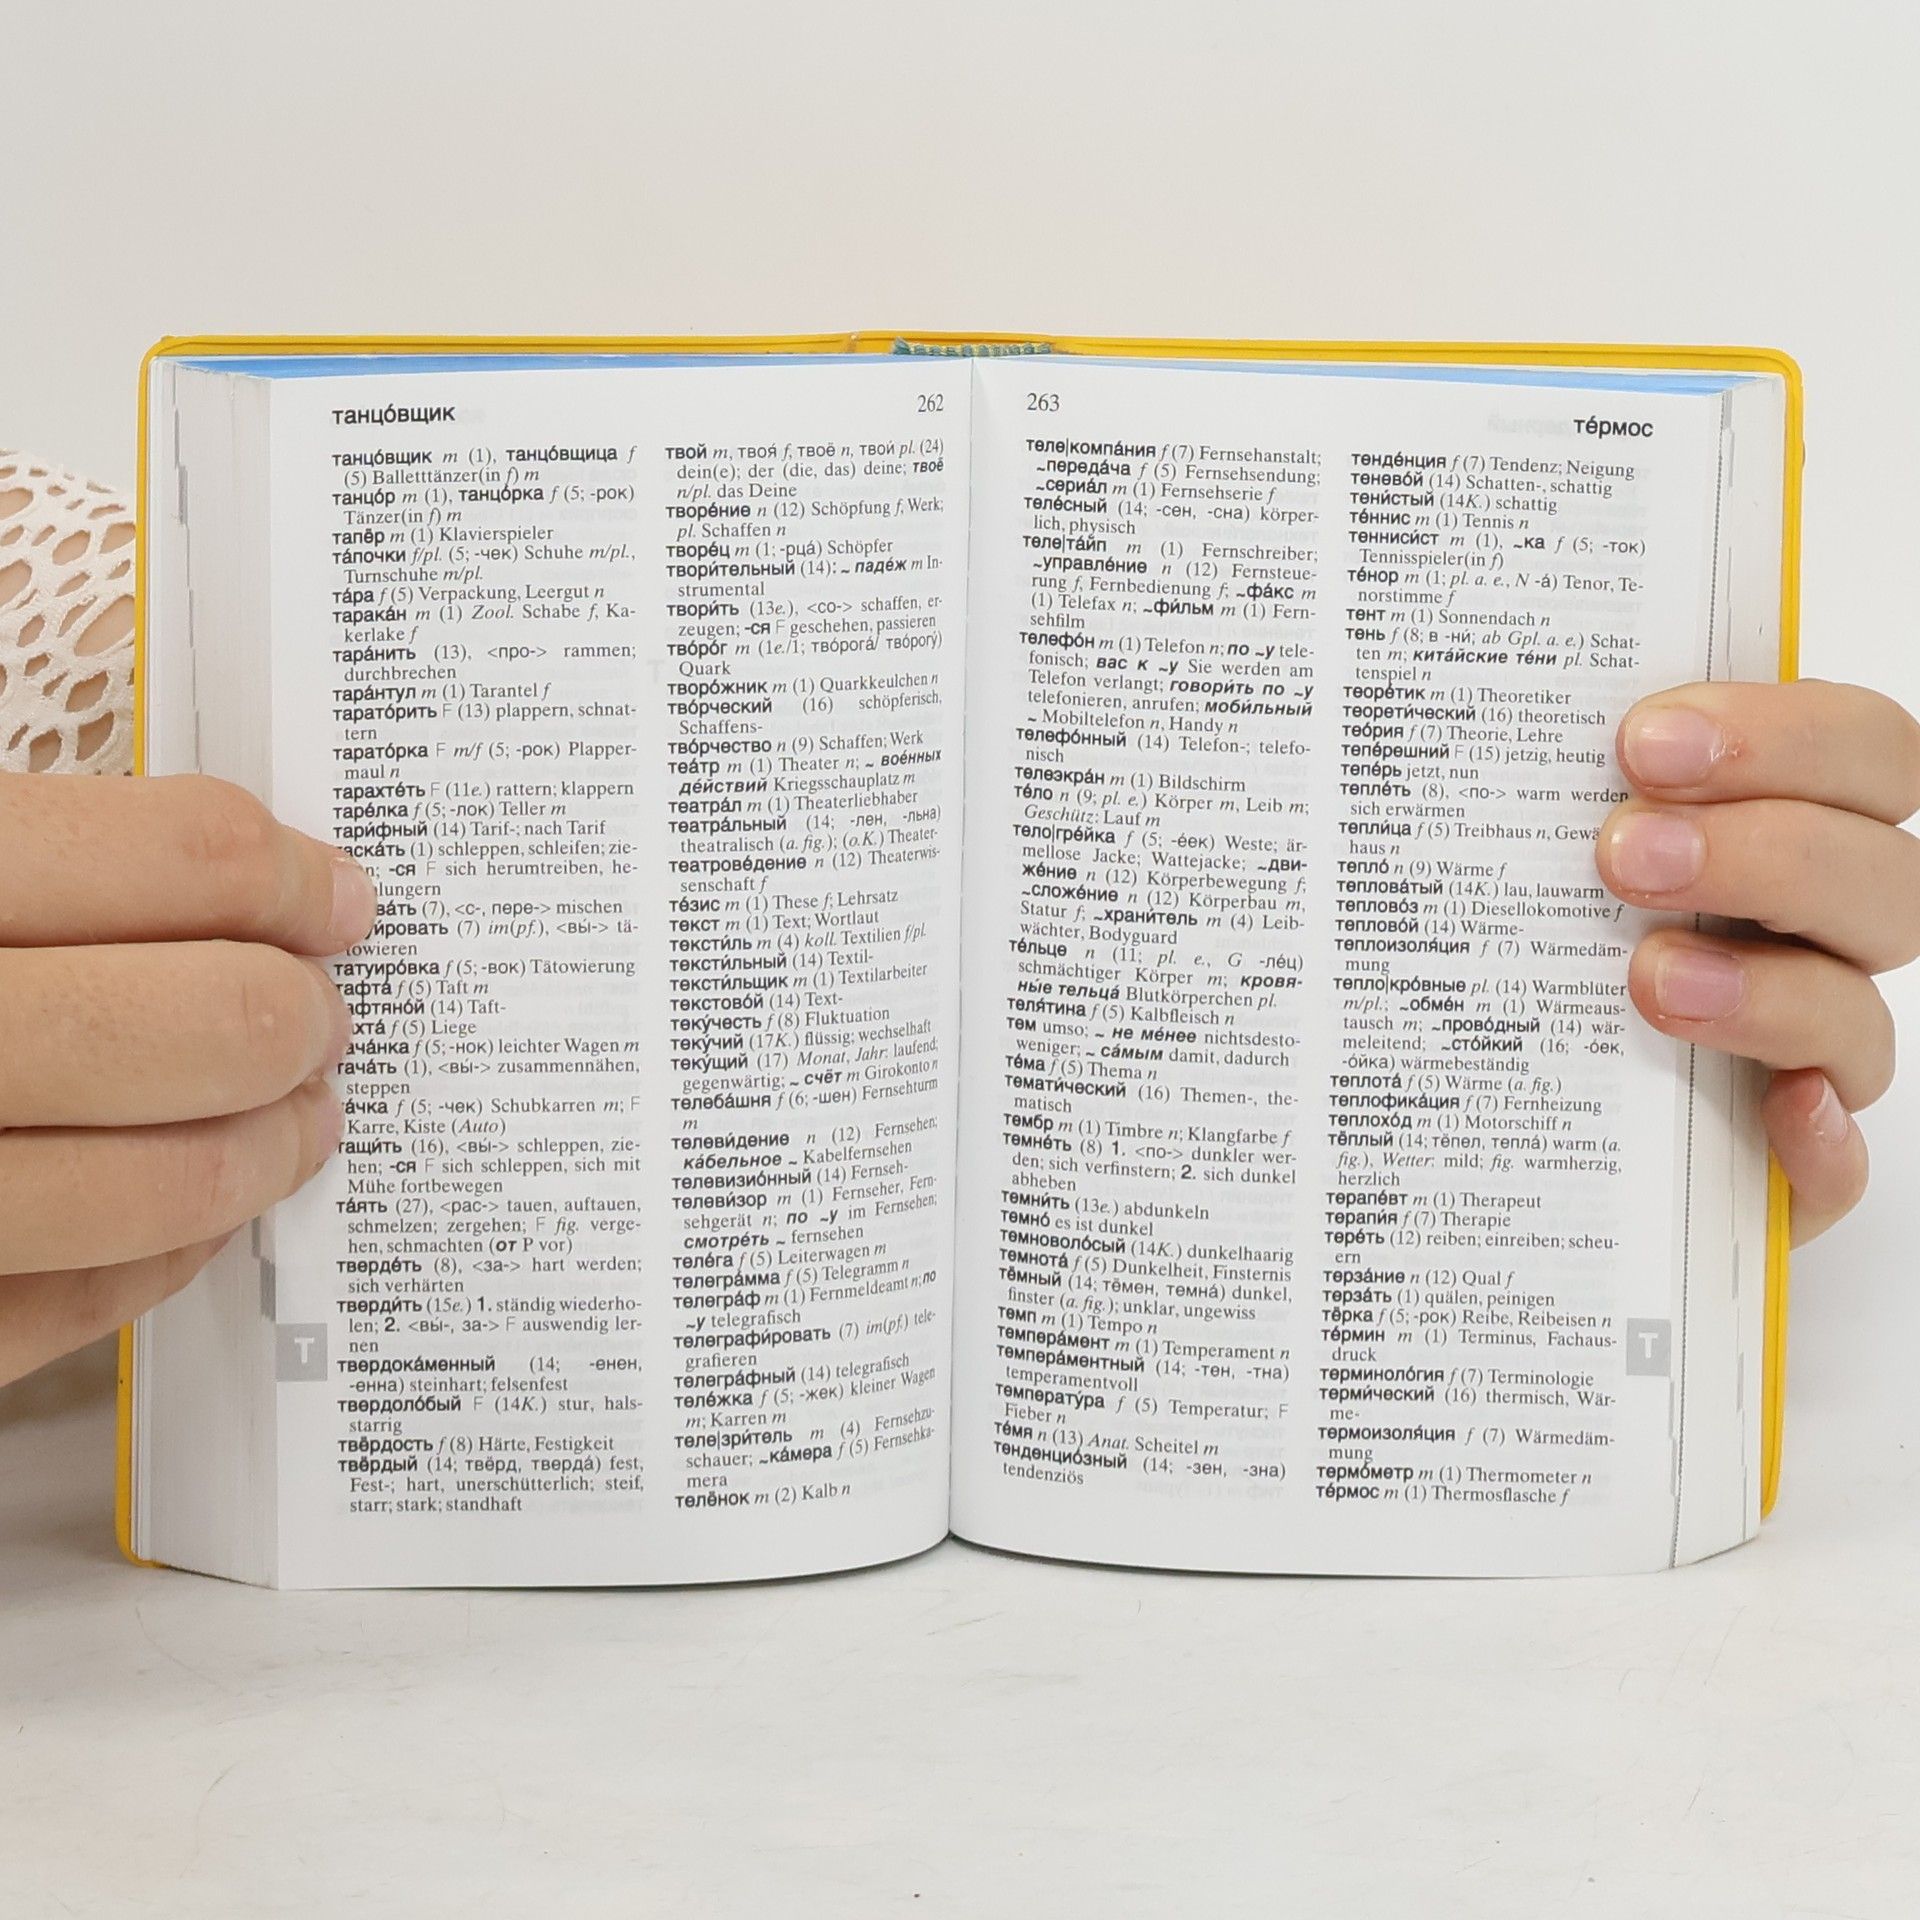 танцо́вщик
262
танцо́вщик m (1), танцо́вщица f
(5) Balletttänzer(in f) m
танцо́р m (1), танцо́рка f (5; -рок)
Tänzer(in f) m
тапёр m (1) Klavierspieler
та́почки f/pl. (5; -чек) Schuhe m/pl.,
Turnschuhe m/pl.
та́ра f (5) Verpackung, Leergut n
тарака́н m (1) Zool. Schabe f, Ka-
kerlake f
тара́нить (13), <про-> rammen;
durchbrechen
тара́нтул m (1) Tarantel f
тарато́рить F (13) plappern, schnat-
tern
тарато́рка F m/f (5; -рок) Plapper-
maul n
тарахте́ть F (11e.) rattern; klappern
таре́лка f (5; -лок) Teller m
тари́фный (14) Tarif-; nach Tarif
таска́ть (1) schleppen, schleifen; zie-
n; -ся F sich herumtreiben, he-
lungern
ва́ть (7), <с-, пере-> mischen
уи́ровать (7) im(pf.), <вы́-> tä-
towieren
татуиро́вка f (5; -вок) Tätowierung
тафта́ f (5) Taft m
афтяно́й (14) Taft-
хта́ f (5) Liege
ача́нка f (5; -нок) leichter Wagen m
тача́ть (1), <вы́-> zusammennähen,
steppen
та́чка f (5; -чек) Schubkarren m; F
Karre, Kiste (Auto)
тащи́ть (16), <вы́-> schleppen, zie-
hen; -ся F sich schleppen, sich mit
Mühe fortbewegen
та́ять (27), <рас-> tauen, auftauen,
schmelzen; zergehen; F fig. verge-
hen, schmachten (от P vor)
тверде́ть (8), <за-> hart werden;
sich verhärten
тверди́ть (15e.) 1. ständig wiederho-
len; 2. <вы́-, за-> F auswendig ler-
nen
твердока́менный (14; -енен,
-енна) steinhart; felsenfest
твердоло́бый F (14K.) stur, hals-
starrig
твёрдость f (8) Härte, Festigkeit
твёрдый (14; твёрд, тверда́) fest,
Fest-; hart, unerschütterlich; steif,
starr; stark; standhaft
твой m, твоя́ f, твоё n, твои́ pl. (24)
dein(e); der (die, das) deine; твоё
n/pl. das Deine
творе́ние n (12) Schöpfung f, Werk;
pl. Schaffen n
творе́ц m (1; -рца́) Schöpfer
твори́тельный (14): ~ паде́ж m In-
strumental
твори́ть (13e.), <со-> schaffen, er-
zeugen; -ся F geschehen, passieren
тво́ро́г m (1e./1; тво́рога́/ тво́рогу́)
Quark
творо́жник m (1) Quarkkeulchen n
тво́рческий (16) schöpferisch,
Schaffens-
тво́рчество n (9) Schaffen; Werk
теа́тр m (1) Theater n; ~ вое́нных
де́йствий Kriegsschauplatz m
театра́л m (1) Theaterliebhaber
театра́льный (14; -лен, -льна)
theatralisch (a. fig.); (o.K.) Theater-
театрове́дение n (12) Theaterwis-
senschaft f
те́зис m (1) These f; Lehrsatz
текст m (1) Text; Wortlaut
тексти́ль m (4) koll. Textilien f/pl.
тексти́льный (14) Textil-
тексти́льщик m (1) Textilarbeiter
текстово́й (14) Text-
теку́честь f (8) Fluktuation
теку́чий (17K.) flüssig; wechselhaft
теку́щий (17) Monat, Jahr: laufend;
gegenwärtig; ~ счёт m Girokonto n
телеба́шня f (6; -шен) Fernsehturm
m
телеви́дение n (12) Fernsehen;
ка́бельное ~ Kabelfernsehen
телевизио́нный (14) Fernseh-
телеви́зор m (1) Fernseher, Fern-
sehgerät n; по ~у im Fernsehen;
смотре́ть ~ fernsehen
теле́га f (5) Leiterwagen m
телегра́мма f (5) Telegramm n
телегра́ф m (1) Fernmeldeamt n; по
~у telegrafisch
телеграфи́ровать (7) im(pf.) tele-
grafieren
телегра́фный (14) telegrafisch
теле́жка f (5; -жек) kleiner Wagen
m; Karren m
теле|зри́тель m (4) Fernsehzu-
schauer; ~ка́мера f (5) Fernsehka-
mera
телёнок m (2) Kalb n
T
263
те́рмос
теле|компа́ния f (7) Fernsehanstalt;
~переда́ча f (5) Fernsehsendung;
~сериа́л m (1) Fernsehserie f
теле́сный (14; -сен, -сна) körper-
lich, physisch
теле|та́йп m (1) Fernschreiber;
~управле́ние n (12) Fernsteue-
rung f, Fernbedienung f; ~фа́кс m
(1) Telefax n; ~фи́льм m (1) Fern-
sehfilm
телефо́н m (1) Telefon n; по ~у tele-
fonisch; вас к ~у Sie werden am
Telefon verlangt; говори́ть по ~у
telefonieren, anrufen; моби́льный
~ Mobiltelefon n, Handy n
телефо́нный (14) Telefon-; telefo-
nisch
телеэкра́н m (1) Bildschirm
те́ло n (9; pl. e.) Körper m, Leib m;
Geschütz: Lauf m
тело|гре́йка f (5; -е́ек) Weste; är-
mellose Jacke; Wattejacke; ~дви-
же́ние n (12) Körperbewegung f;
~сложе́ние n (12) Körperbau m,
Statur f; ~храни́тель m (4) Leib-
wächter, Bodyguard
те́льце n (11; pl. e., G -ле́ц)
schmächtiger Körper m; кровя-
ны́е тельца́ Blutkörperchen pl.
теля́тина f (5) Kalbfleisch n
тем umso; ~ не ме́нее nichtsdesto-
weniger; ~ са́мым damit, dadurch
те́ма f (5) Thema n
темати́ческий (16) Themen-, the-
matisch
тембр m (1) Timbre n; Klangfarbe f
темне́ть (8) 1. <по-> dunkler wer-
den; sich verfinstern; 2. sich dunkel
abheben
темни́ть (13e.) abdunkeln
темно́ es ist dunkel
темноволо́сый (14K.) dunkelhaarig
темнота́ f (5) Dunkelheit, Finsternis
тёмный (14; тёмен, темна́) dunkel,
finster (a. fig.); unklar, ungewiss
темп m (1) Tempo n
темпера́мент m (1) Temperament n
темпера́ментный (14; -тен, -тна)
temperamentvoll
температу́ра f (5) Temperatur; F
Fieber n
те́мя n (13) Anat. Scheitel m
тенденцио́зный (14; -зен, -зна)
tendenziös
тенде́нция f (7) Tendenz; Neigung
тенево́й (14) Schatten-, schattig
тени́стый (14K.) schattig
те́ннис m (1) Tennis n
тенниси́ст m (1), ~ка f (5; -ток)
Tennisspieler(in f)
те́нор m (1; pl. a. e., N -á) Tenor, Te-
norstimme f
тент m (1) Sonnendach n
тень f (8; в -ни́; ab Gpl. a. e.) Schat-
ten m; кита́йские те́ни pl. Schat-
tenspiel n
теоре́тик m (1) Theoretiker
теорети́ческий (16) theoretisch
тео́рия f (7) Theorie, Lehre
тепе́решний F (15) jetzig, heutig
тепе́рь jetzt, nun
тепле́ть (8), <по-> warm werden
sich erwärmen
тепли́ца f (5) Treibhaus n, Gewä
haus n
тепло́ n (9) Wärme f
теплова́тый (14K.) lau, lauwarm
теплово́з m (1) Diesellokomotive f
теплово́й (14) Wärme-
теплоизоля́ция f (7) Wärmedäm-
mung
тепло|кро́вные pl. (14) Warmblüter
m/pl.; ~обме́н m (1) Wärmeaus-
tausch m; ~прово́дный (14) wär-
meleitend; ~сто́йкий (16; -о́ек,
-о́йка) wärmebeständig
теплота́ f (5) Wärme (a. fig.)
теплофика́ция f (7) Fernheizung
теплохо́д m (1) Motorschiff n
тёплый (14; тёпел, тепла́) warm (a.
fig.), Wetter: mild; fig. warmherzig,
herzlich
терапе́вт m (1) Therapeut
терапи́я f (7) Therapie
тере́ть (12) reiben; einreiben; scheu-
ern
терза́ние n (12) Qual f
терза́ть (1) quälen, peinigen
тёрка f (5; -рок) Reibe, Reibeisen n
те́рмин m (1) Terminus, Fachaus-
druck
терминоло́гия f (7) Terminologie
терми́ческий (16) thermisch, Wär-
me-
термоизоля́ция f (7) Wärmedäm-
mung
термо́метр m (1) Thermometer n
те́рмос m (1) Thermosflasche f
T